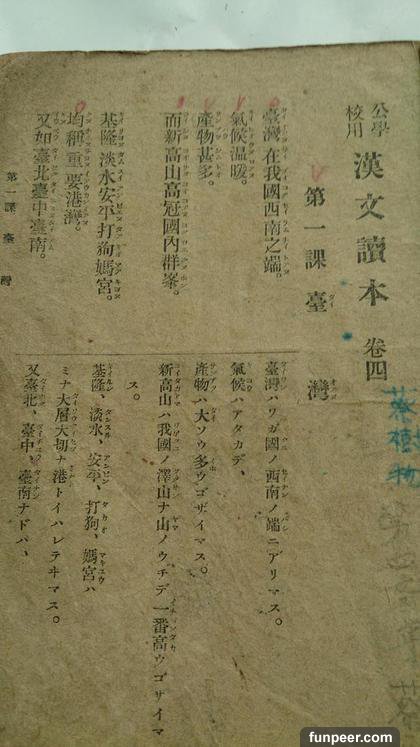 公學校用 漢文讀本 卷四
第一課 臺灣
臺灣在我國西南之端。
氣候温暖。
產物甚多。
而新高山高冠國內群峯。
基隆淡水安平打狗媽宮。
均稱重要港灣。
又如臺北臺中臺南。
臺灣ハワガ國ノ西南ノ端ニアリマス。
氣候ハアタカデ、
產物ハ大ソウ多ウゴザイマス。
新高山ハ我國ノ澤山ナ山ノウチデ一番高ウゴザイマ
ス。
基隆、淡水、安平、打狗、媽宮ハ
ミナ大層大切ナ港トイハレテヰマス。
又臺北、臺中、臺南ナドハ、
第一課 臺灣
植物
funpeer.com